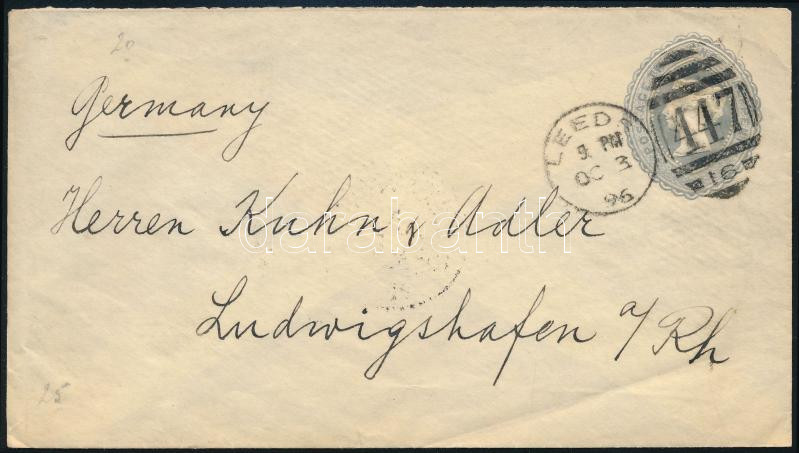 20
Germany
LEEDS
9 PM
OC 3
96
447
Herren Kuhn & Adler
darabanth
Ludwigshafen a/Rh
25